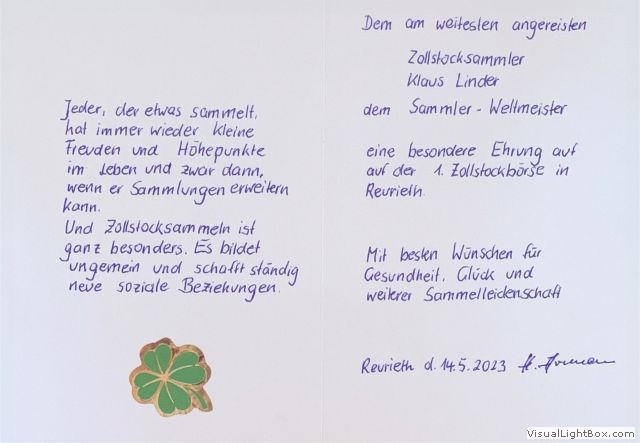 Jeder, der etwas sammelt,
hat immer wieder kleine
Freuden und Höhepunkte
im Leben und zwar dann,
wenn er Sammlungen erweitern
kann.
Und Zollstocksammeln ist
ganz besonders. Es bildet
ungemein und schafft ständig
neue soziale Beziehungen.
Dem am weitesten angereisten
Zollstocksammler
Klaus Linder
dem Sammler - Weltmeister
eine besondere Ehrung auf
auf der 1. Zollstockbörse in
Reurieth.
Mit besten Wünschen für
Gesundheit, Glück und
weiterer Sammelleidenschaft
Reurieth d. 14.5.2023
VisualLightBox.com